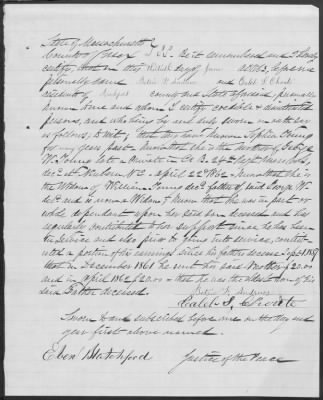 State of Massachusetts
County of Essex } SS. Be it remembered and I hereby
certify that on this day of June AD 1863, before me
personally came and Caleb S. Choate
residents of County and State aforesaid, personally
known to me and whom I certify credible & disinterested
persons, and who being by me duly sworn on oath say
as follows, to wit, that they have known Sophia Young
for many years past. Know that she is the mother of George
W. Young late a Private in Co B. 24th Regt Mass Vols,
decd at Newbern N.C. April 22d 1862. Know that she is
the Widow of William Young decd father of said George W.
decd and is now a Widow & Know that she was in part or
whole dependant upon her said son deceased and he
regularly contributed to her support since he has been
in service and also prior to going into service, contrib
uted a portion of his earnings since his father's decease Sept 1857
that in December 1861 he sent her said Mother $20.00
and in April 1862 $20.00 & that he was the son of his
said Father deceased.
Caleb S. Choate
Sworn to and subscribed before me on the day and
year first above named.
Eben Blatchford Justice of the Peace